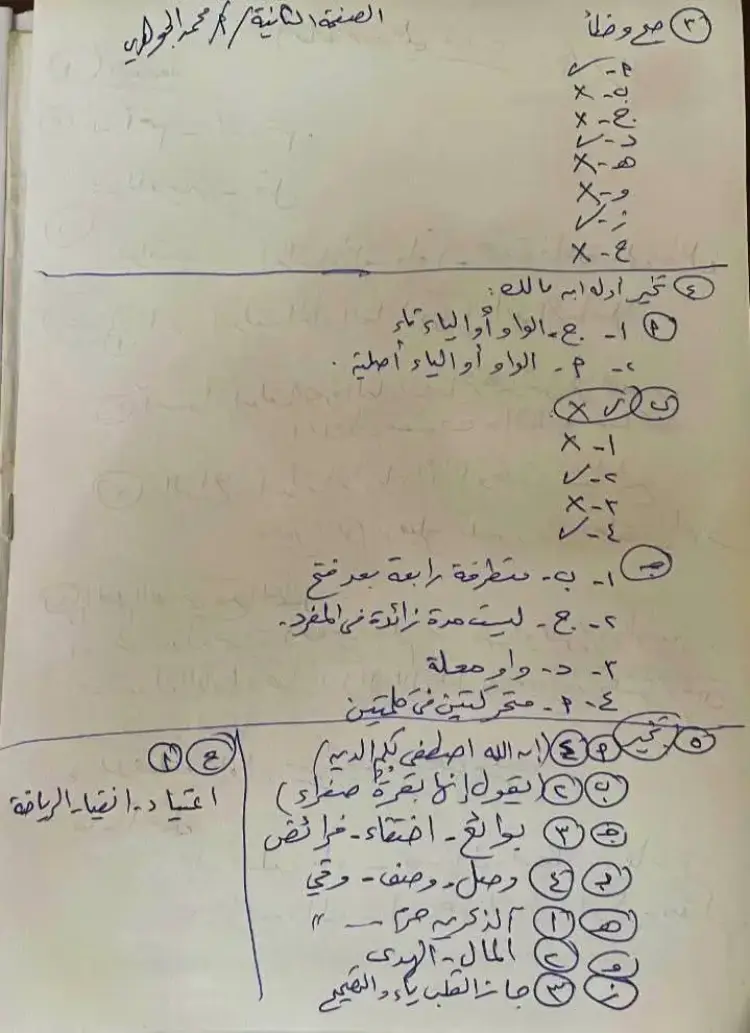 الصفحة الثانية / أ/ محمد الجوهري
٣ صح وخطأ
أ- ✓
ب- ×
ج- ×
د- ✓
هـ- ×
و- ×
ز- ✓
ح- ×
٤ تخير أدلة ابن مالك:
أ ١- ج- الواو أو الياء تاء
٢- أ- الواو أو الياء أصلية.
ب ✓ ×
١- ×
٢- ✓
٣- ×
٤- ✓
جـ ١- ب- متطرفة رابعة بعد فتح
٢- ج- ليست مدة زائدة في المفرد.
٣- د- واو معلة
٤- أ- متحركتين في كلمتين
٥ تخير أ ٤ (إن الله اصطفى لكم الدين)
ب ٢ (يقول إنها بقرة صفراء)
جـ ٣ بوائع - اختفاء - فرائض
د ٤ وصل - وصف - وقي
هـ ١ آلذكرين حرم - "
و ٢ المال - الهدى
ز ٣ جاز القلب ياء والتصحيح
ح ٢
اعتياد - انقياد - الرياضة